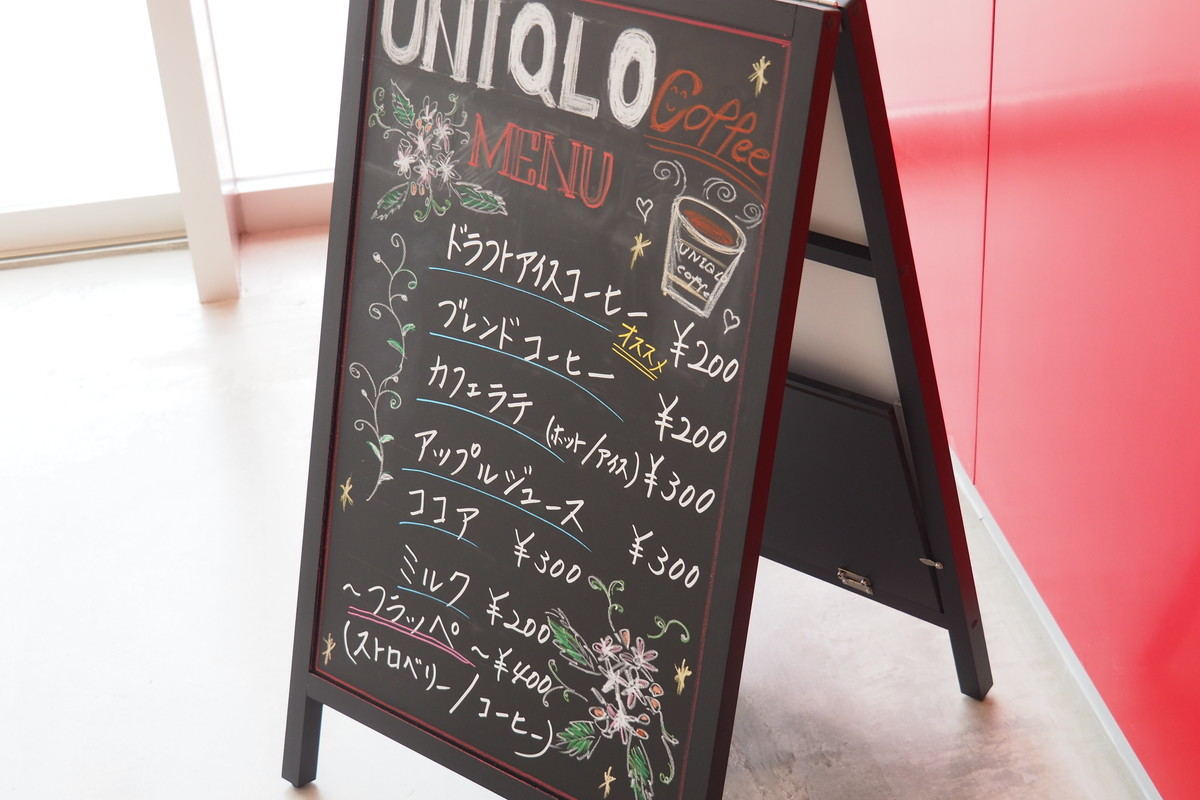 UNIQLO Coffee
MENU
UNIQLO
coffee
ドラフトアイスコーヒー
オススメ ¥200
ブレンドコーヒー ¥200
カフェラテ (ホット/アイス) ¥300
アップルジュース ¥300
ココア ¥300
ミルク ¥200
~フラッペ~ ¥400
(ストロベリー/コーヒー)